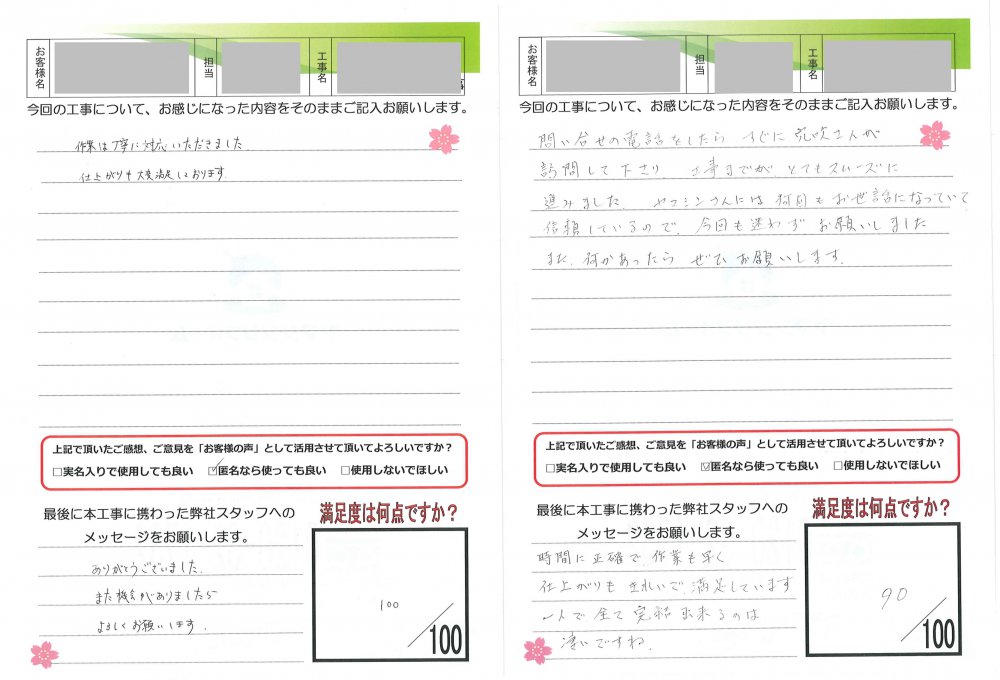 お客様名
担当
工事名
今回の工事について、お感じになった内容をそのままご記入お願いします。
作業は丁寧に対応いただきました
仕上がりも大変満足しております。
上記で頂いたご感想、ご意見を「お客様の声」として活用させて頂いてよろしいですか?
□実名入りで使用しても良い ☑匿名なら使っても良い □使用しないでほしい
最後に本工事に携わった弊社スタッフへの
メッセージをお願いします。
ありがとうございました。
また機会がありましたら
よろしくお願いします。
満足度は何点ですか?
100
/100
お客様名
担当
工事名
今回の工事について、お感じになった内容をそのままご記入お願いします。
問い合せの電話をしたら すぐに さんが
訪問して下さり、工事までが とてもスムーズに
進みました。 ヤマシンさんには何回もお世話になっていて
信頼しているので、今回も迷わず お願いしました
また、何かあったら ぜひ お願いします。
上記で頂いたご感想、ご意見を「お客様の声」として活用させて頂いてよろしいですか?
□実名入りで使用しても良い ☑匿名なら使っても良い □使用しないでほしい
最後に本工事に携わった弊社スタッフへの
メッセージをお願いします。
時間に正確で、作業も早く
仕上がりも きれいで、満足しています
一人で全て完結出来るのは
凄いですね。
満足度は何点ですか?
90
/100